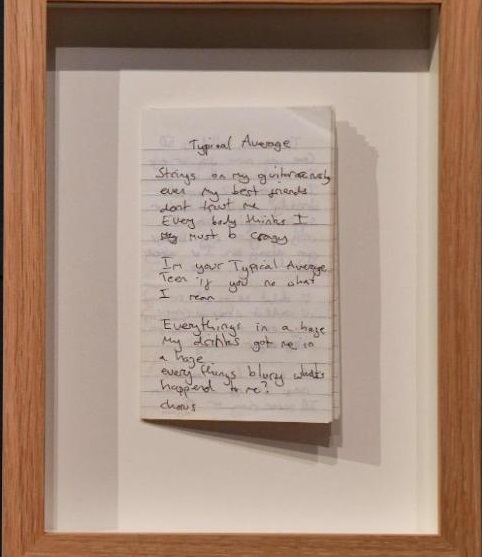 Typical Average
Strings on my guitar
even my best friends
dont trust me
Every body thinks I
must b crazy
Im your Typical Average
Teen if you no what
I mean
Everythings in a haze
My drinks got me in
a haze
every things blury whats
happend to me?
chorus